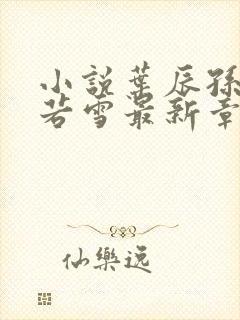 小説葉辰孫
若雪最新章
仙樂遥